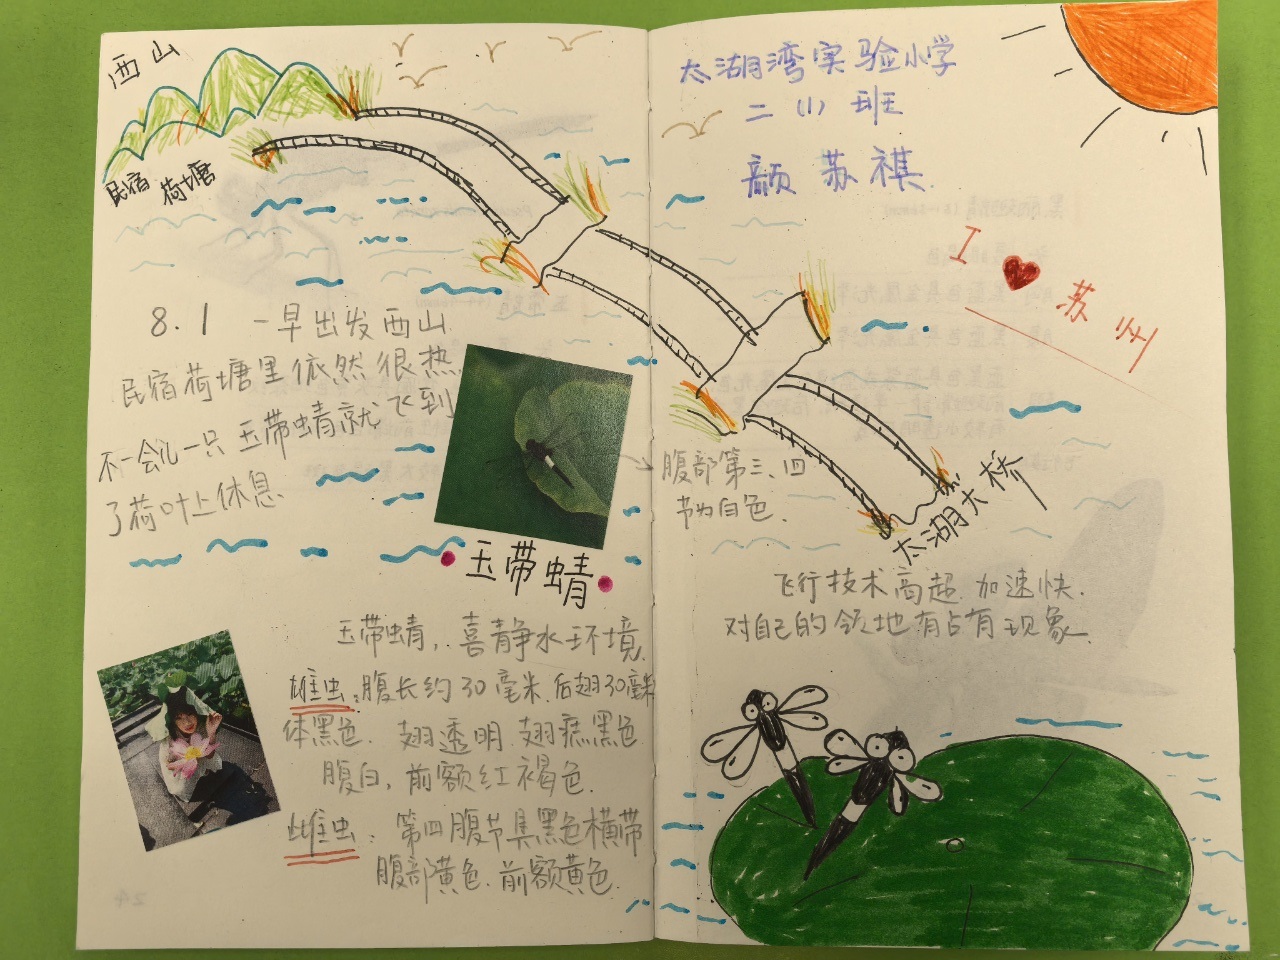 西山
民宿 荷塘
8.1 一早出发西山
民宿荷塘里依然很热
不一会儿一只玉带蜻就飞到
了荷叶上休息.
玉带蜻
玉带蜻,. 喜静水环境.
雄虫:腹长约30毫米.后翅30毫米
体黑色. 翅透明.翅痣黑色
腹白,前额红褐色.
雌虫:第四腹节具黑色横带
腹部黄色.前额黄色.
太湖湾实验小学
二(1)班
颜苏祺
I 苏州
腹部第三、四
节为白色.
太湖大桥
飞行技术高超.加速快.
对自己的领地有占有现象.